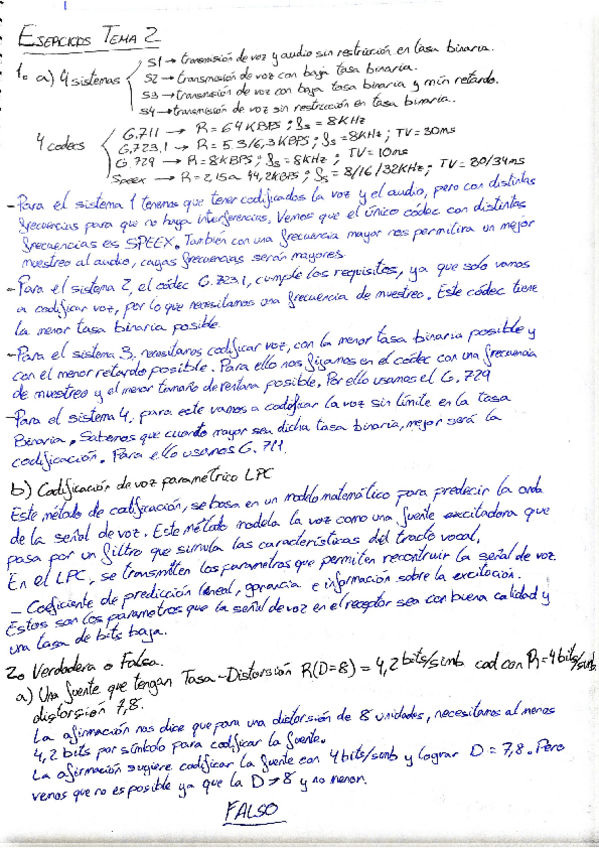 EJERCICIOS TEMA 2
1. a) 4 sistemas
S1 → transmisión de voz y audio sin restricción en tasa binaria.
S2 → transmisión de voz con baja tasa binaria.
S3 → transmisión de voz con baja tasa binaria y mín retardo.
S4 → transmisión de voz sin restricción en tasa binaria.
4 codecs
G.711 → R = 64 KBPS ; fs = 8 KHz
G.723.1 → R = 5.3/6,3 KBPS ; fs = 8KHz ; TV = 30ms
G.729 → R = 8KBPS ; fs = 8KHz ; TV = 10ms
Speex → R = 2,15 a 44,2KBPS ; fs = 8/16/32KHz ; TV = 30/34ms
- Para el sistema 1 tenemos que tener codificados la voz y el audio, pero con distintas
frecuencias para que no haya interferencias. Vemos que el único códec con distintas
frecuencias es SPEEX. También con una frecuencia mayor nos permitira un mejor
muestreo al audio, cuyas frecuencias serán mayores.
- Para el sistema 2, el códec G.723.1, cumple los requisitos, ya que solo vamos
a codificar voz, por lo que necesitamos una frecuencia de muestreo. Este códec tiene
la menor tasa binaria posible.
- Para el sistema 3, necesitamos codificar voz, con la menor tasa binaria posible y
con el menor retardo posible. Para ello nos fijamos en el códec con una frecuencia
de muestreo y el menor tamaño de ventana posible. Por ello usamos el G.729
- Para el sistema 4, para este vamos a codificar la voz sin límite en la tasa
Binaria. Sabemos que cuanto mayor sea dicha tasa binaria, mejor será la
codificación. Para ello usamos G.711.
b) Codificación de voz paramétrico LPC
Este método de codificación, se basa en un modelo matemático para predecir la onda
de la señal de voz. Este método modela la voz como una fuente excitadora que
pasa por un filtro que simula las características del tracto vocal.
En el LPC, se transmiten los parametros que permiten recontruir la señal de voz.
- Coeficiente de predicción lineal, ganancia e información sobre la excitación.
Estos son los parametros que la señal de voz en el receptor sea con buena calidad y
una tasa de bits baja.
2. Verdadera o Falsa.
a) Una fuente que tengan Tasa-Distorsión R(D=8) = 4,2 bits/simb cod con R1 = 4 bits/simb
distorsión 7,8.
La afirmación nos dice que para una distorsión de 8 unidades, necesitamos al menos
4,2 bits por símbolo para codificar la fuente.
La afirmación sugiere codificar la fuente con 4 bits/simb y lograr D = 7,8. Pero
vemos que no es posible ya que la D > 8 y no menor.
FALSO